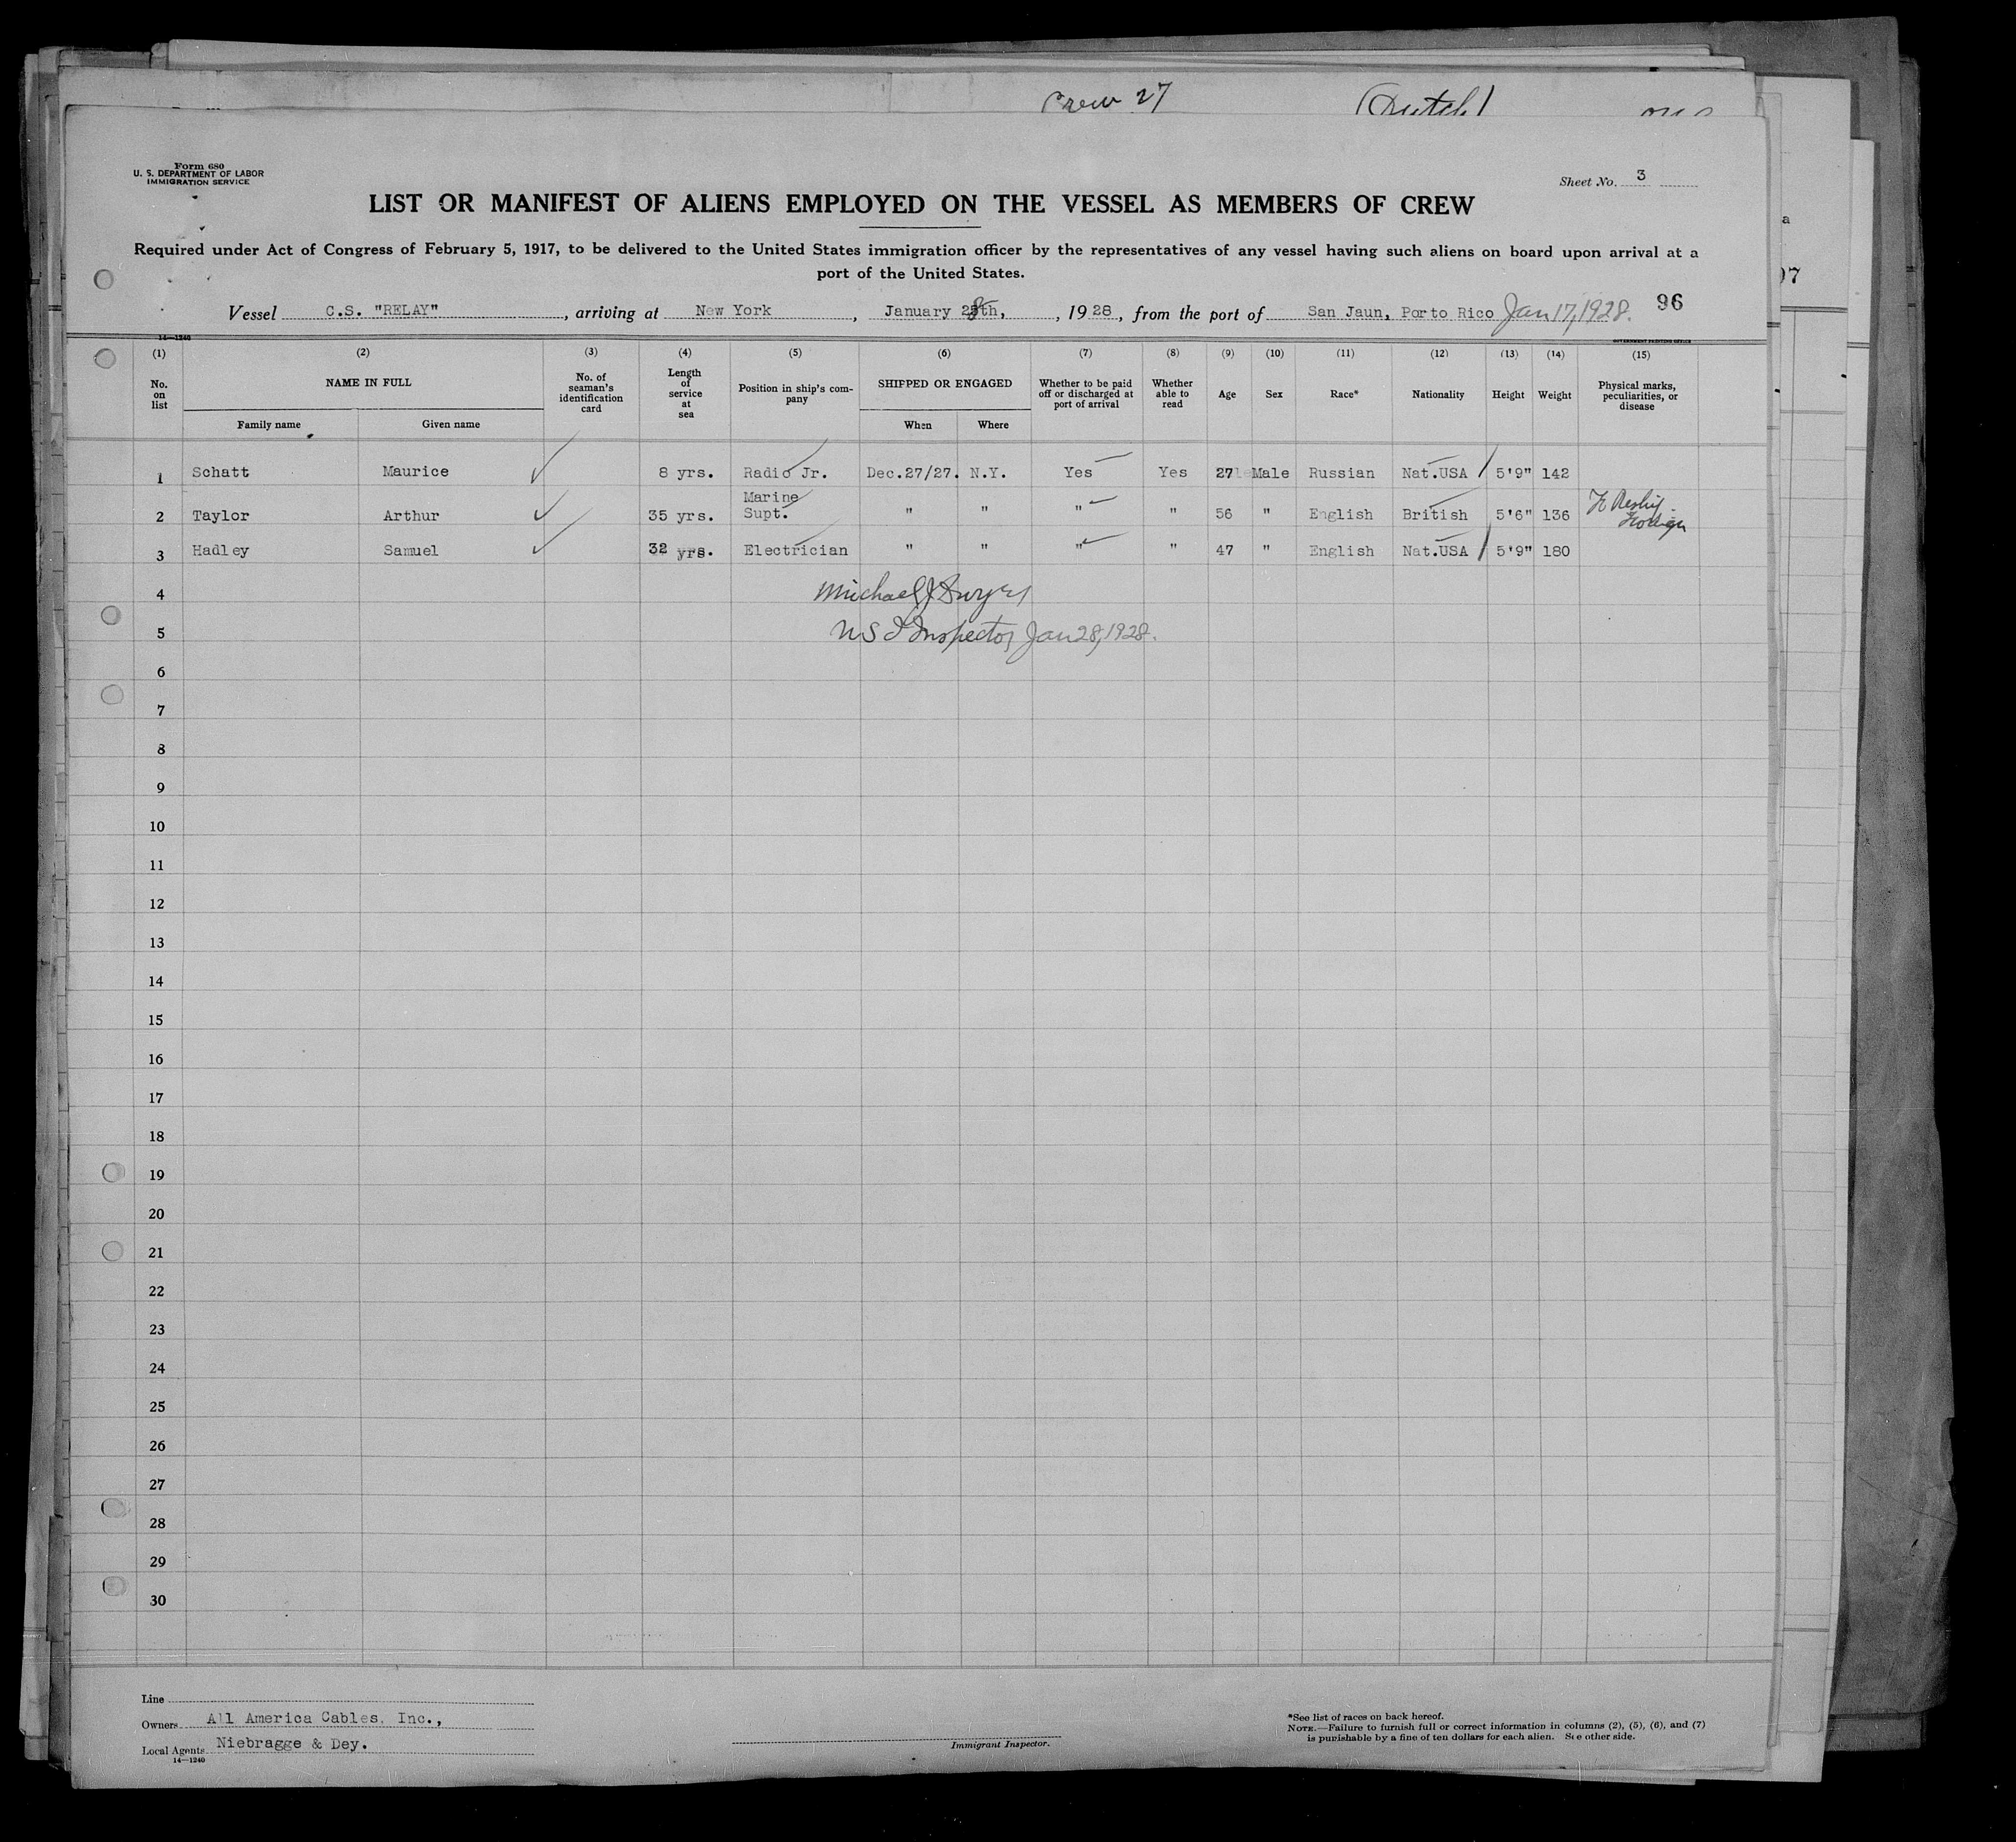 Crew 27 (Dutch)
Form 680
U. S. DEPARTMENT OF LABOR
IMMIGRATION SERVICE
Sheet No. 3
LIST OR MANIFEST OF ALIENS EMPLOYED ON THE VESSEL AS MEMBERS OF CREW
Required under Act of Congress of February 5, 1917, to be delivered to the United States immigration officer by the representatives of any vessel having such aliens on board upon arrival at a
port of the United States.
Vessel C.S. "RELAY", arriving at New York, January 28th, , 1928, from the port of San Jaun, Porto Rico Jan 17, 1928. 96
14—1240 GOVERNMENT PRINTING OFFICE
(1) (2) (3) (4) (5) (6) (7) (8) (9) (10) (11) (12) (13) (14) (15)
No. on list NAME IN FULL No. of seaman's identification card Length of service at sea Position in ship's company SHIPPED OR ENGAGED Whether to be paid off or discharged at port of arrival Whether able to read Age Sex Race* Nationality Height Weight Physical marks, peculiarities, or disease
Family name Given name When Where
1 Schatt Maurice 8 yrs. Radio Jr. Dec.27/27. N.Y. Yes Yes 27 Male Russian Nat.USA 5'9" 142
2 Taylor Arthur 35 yrs. Marine Supt. " " " " 56 " English British 5'6" 136
3 Hadley Samuel 32 yrs. Electrician " " " " 47 " English Nat.USA 5'9" 180
4 Michael J Dwyer
5 U S I Inspector Jan 28, 1928.
6
7
8
9
10
11
12
13
14
15
16
17
18
19
20
21
22
23
24
25
26
27
28
29
30
Line
Owners All America Cables, Inc.,
Local Agents Niebragge & Dey.
14—1240
Immigrant Inspector.
*See list of races on back hereof.
NOTE.—Failure to furnish full or correct information in columns (2), (5), (6), and (7)
is punishable by a fine of ten dollars for each alien. See other side.